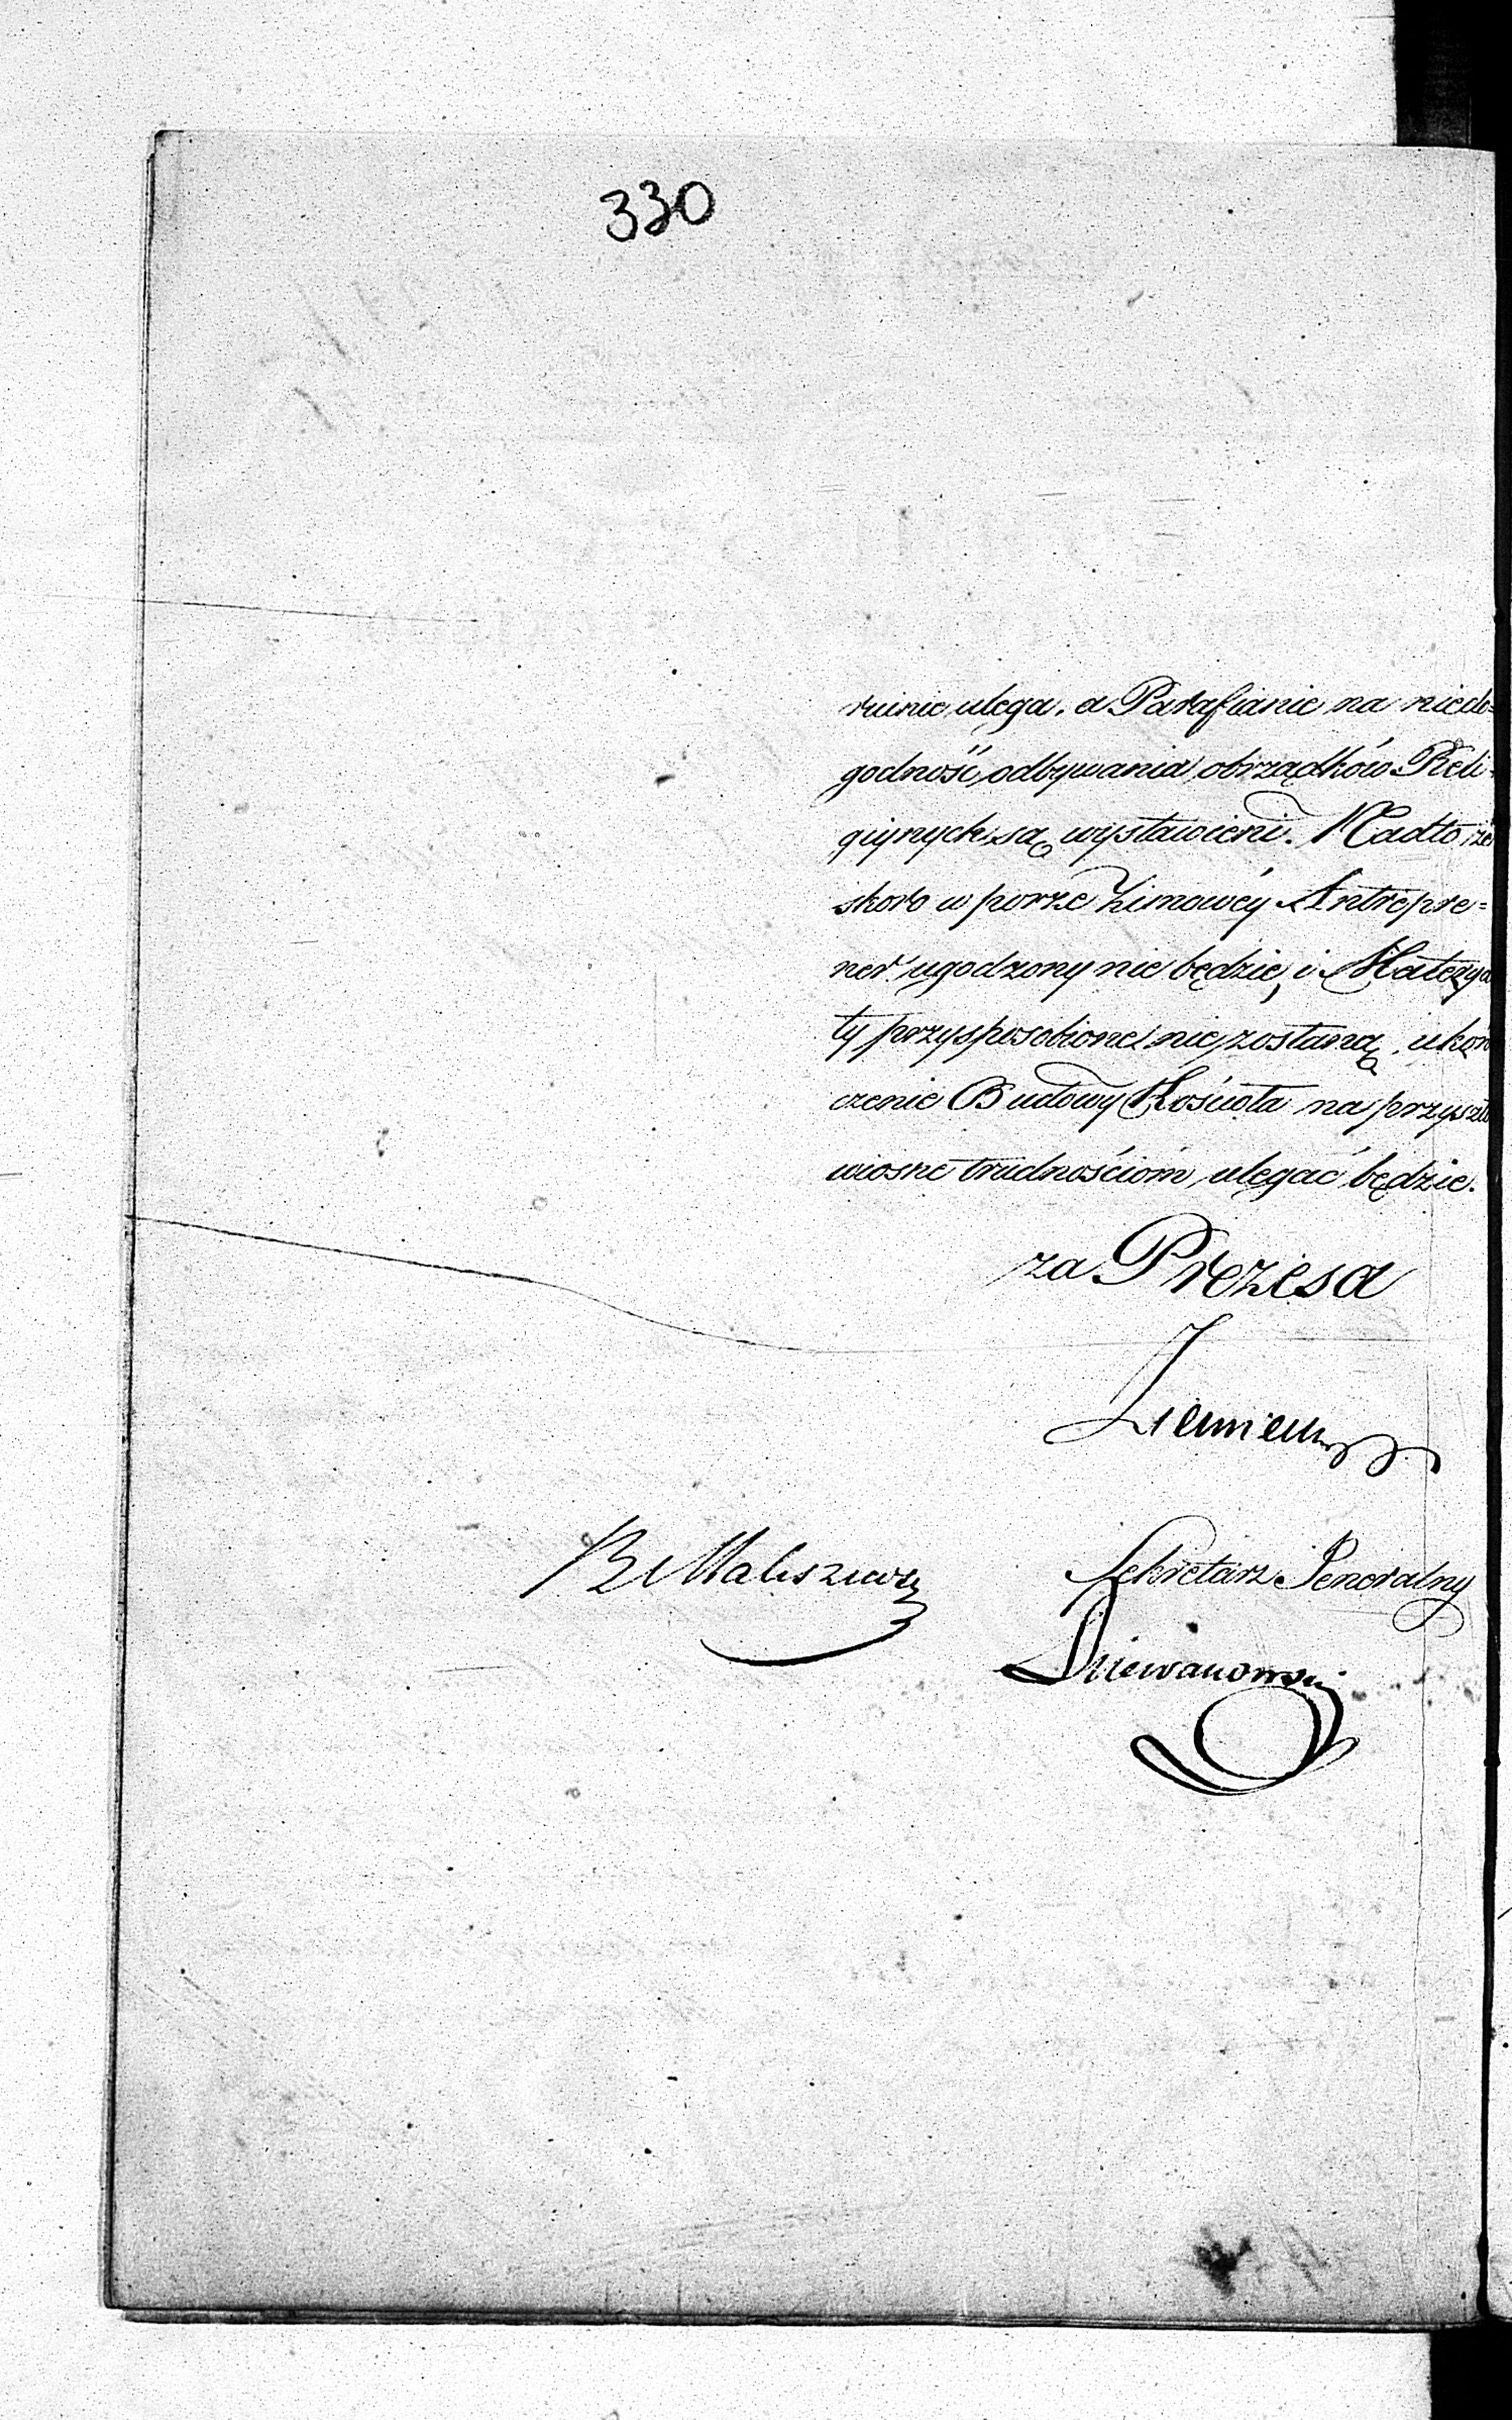 330
ruinie ulega, a Parafianie na niedo=
godność odbywania obrządków Reli=
giynych są wystawieni. Nadto że
skoro w porze Zimowéy Antrepre=
ner ugodzony nie będzie, i Materya
ły przysposobione nie zostaną, ukoń
czenie Budowy Kościoła na przyszłą
wiosnę trudnościom ulegać będzie.
za Prezesa
Ziemiecki
B Maliszewski
Sekretarz Jeneralny
Dziewanowski